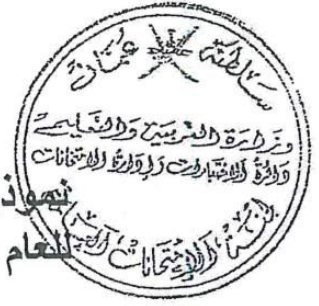 سلطنة عمان
وزارة التربية والتعليم
دائرة الاختبارات وإدارة الامتحانات
لجنة الامتحانات
نموذ
للعام